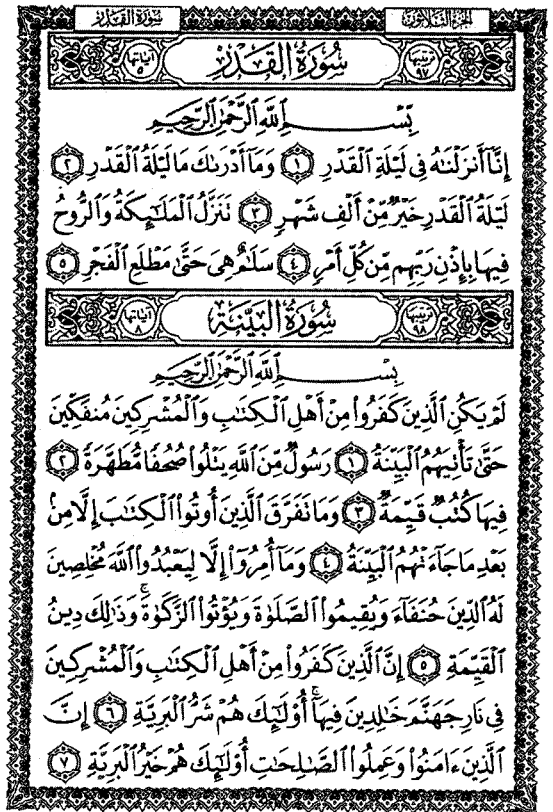 الجزء الثلاثون
سورة القدر
ترتيبها ٩٧
سُورَةُ القَدْرِ
آياتها ٥
بِسْمِ ٱللَّهِ ٱلرَّحْمَٰنِ ٱلرَّحِيمِ
إِنَّآ أَنزَلْنَٰهُ فِى لَيْلَةِ ٱلْقَدْرِ ١ وَمَآ أَدْرَىٰكَ مَا لَيْلَةُ ٱلْقَدْرِ ٢
لَيْلَةُ ٱلْقَدْرِ خَيْرٌ مِّنْ أَلْفِ شَهْرٍ ٣ تَنَزَّلُ ٱلْمَلَٰٓئِكَةُ وَٱلرُّوحُ
فِيهَا بِإِذْنِ رَبِّهِم مِّن كُلِّ أَمْرٍ ٤ سَلَٰمٌ هِىَ حَتَّىٰ مَطْلَعِ ٱلْفَجْرِ ٥
ترتيبها ٩٨
سُورَةُ البَيِّنَةِ
آياتها ٨
بِسْمِ ٱللَّهِ ٱلرَّحْمَٰنِ ٱلرَّحِيمِ
لَمْ يَكُنِ ٱلَّذِينَ كَفَرُوا۟ مِنْ أَهْلِ ٱلْكِتَٰبِ وَٱلْمُشْرِكِينَ مُنفَكِّينَ
حَتَّىٰ تَأْتِيَهُمُ ٱلْبَيِّنَةُ ١ رَسُولٌ مِّنَ ٱللَّهِ يَتْلُوا۟ صُحُفًا مُّطَهَّرَةً ٢
فِيهَا كُتُبٌ قَيِّمَةٌ ٣ وَمَا تَفَرَّقَ ٱلَّذِينَ أُوتُوا۟ ٱلْكِتَٰبَ إِلَّا مِنۢ
بَعْدِ مَا جَآءَتْهُمُ ٱلْبَيِّنَةُ ٤ وَمَآ أُمِرُوٓا۟ إِلَّا لِيَعْبُدُوا۟ ٱللَّهَ مُخْلِصِينَ
لَهُ ٱلدِّينَ حُنَفَآءَ وَيُقِيمُوا۟ ٱلصَّلَوٰةَ وَيُؤْتُوا۟ ٱلزَّكَوٰةَ ۚ وَذَٰلِكَ دِينُ
ٱلْقَيِّمَةِ ٥ إِنَّ ٱلَّذِينَ كَفَرُوا۟ مِنْ أَهْلِ ٱلْكِتَٰبِ وَٱلْمُشْرِكِينَ
فِى نَارِ جَهَنَّمَ خَٰلِدِينَ فِيهَآ ۚ أُو۟لَٰٓئِكَ هُمْ شَرُّ ٱلْبَرِيَّةِ ٦ إِنَّ
ٱلَّذِينَ ءَامَنُوا۟ وَعَمِلُوا۟ ٱلصَّٰلِحَٰتِ أُو۟لَٰٓئِكَ هُمْ خَيْرُ ٱلْبَرِيَّةِ ٧